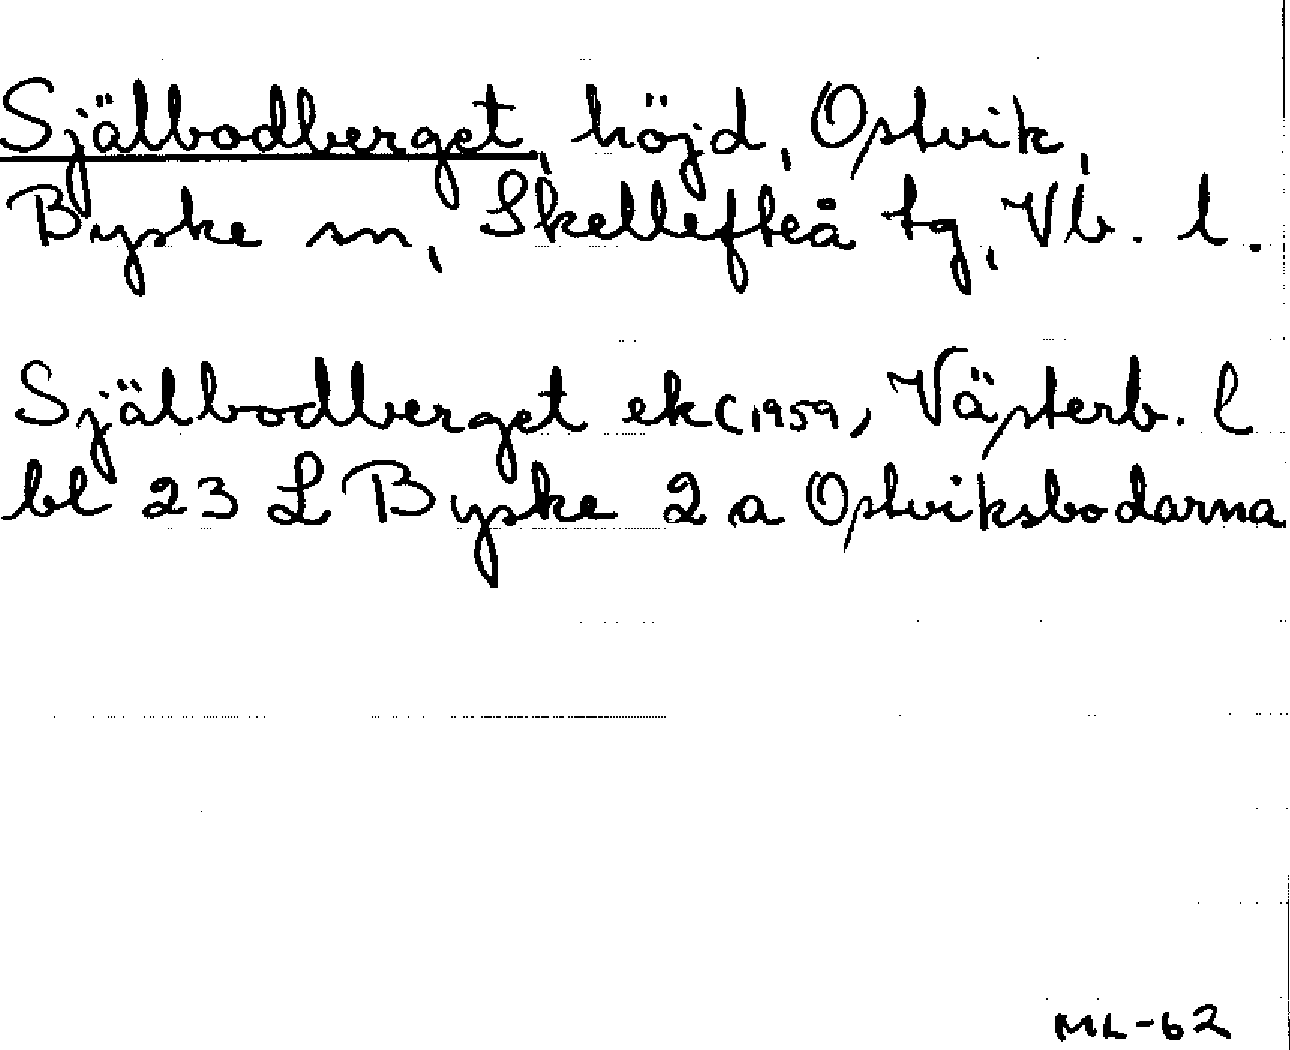 Själbodberget, höjd, Ostvik,
Byske sn, Skellefteå tg, Vb. l.
Själbodberget ek (1959, Västerb. l
bl 23 L Byske 2 a Ostviksbodarna
ML-62